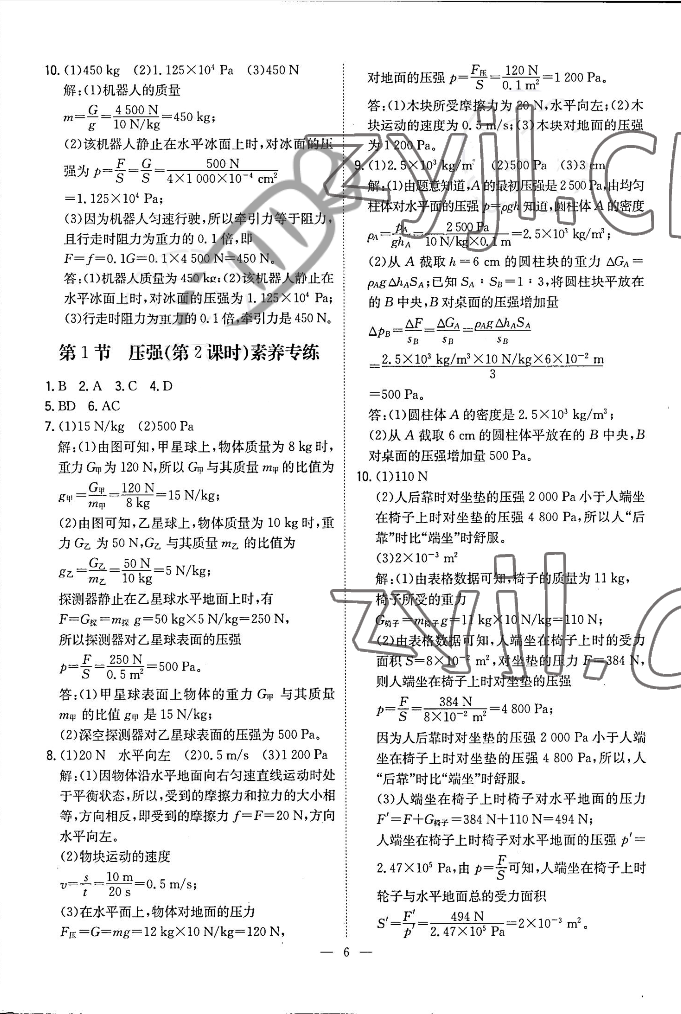 10. (1)450 kg (2)1.125×10⁴ Pa (3)450 N
解:(1)机器人的质量
m=G/g=4 500 N/10 N/kg=450 kg;
(2)该机器人静止在水平冰面上时,对冰面的压
强为 p=F/S=G/S=500 N/4×1 000×10⁻⁴ cm²
=1.125×10⁴ Pa;
(3)因为机器人匀速行驶,所以牵引力等于阻力,
且行走时阻力为重力的 0.1 倍,即
F=f=0.1G=0.1×4 500 N=450 N。
答:(1)机器人质量为 450 kg;(2)该机器人静止在
水平冰面上时,对冰面的压强为 1.125×10⁴ Pa;
(3)行走时阻力为重力的 0.1 倍,牵引力是 450 N。
第 1 节 压强(第 2 课时)素养专练
1. B 2. A 3. C 4. D
5. BD 6. AC
7. (1)15 N/kg (2)500 Pa
解:(1)由图可知,甲星球上,物体质量为 8 kg 时,
重力 G甲 为 120 N,所以 G甲 与其质量 m甲 的比值为
g甲=G甲/m甲=120 N/8 kg=15 N/kg;
(2)由图可知,乙星球上,物体质量为 10 kg 时,重
力 G乙 为 50 N,G乙 与其质量 m乙 的比值为
g乙=G乙/m乙=50 N/10 kg=5 N/kg;
探测器静止在乙星球水平地面上时,有
F=G探=m探 g=50 kg×5 N/kg=250 N,
所以探测器对乙星球表面的压强
p=F/S=250 N/0.5 m²=500 Pa。
答:(1)甲星球表面上物体的重力 G甲 与其质量
m甲 的比值 g甲 是 15 N/kg;
(2)深空探测器对乙星球表面的压强为 500 Pa。
8. (1)20 N 水平向左 (2)0.5 m/s (3)1 200 Pa
解:(1)因物体沿水平地面向右匀速直线运动时处
于平衡状态,所以,受到的摩擦力和拉力的大小相
等,方向相反,即受到的摩擦力 f=F=20 N,方向
水平向左。
(2)物块运动的速度
v=s/t=10 m/20 s=0.5 m/s;
(3)在水平面上,物体对地面的压力
F压=G=mg=12 kg×10 N/kg=120 N,
对地面的压强 p=F压/S=120 N/0.1 m²=1 200 Pa。
答:(1)木块所受摩擦力为 20 N,水平向左;(2)木
块运动的速度为 0.5 m/s;(3)木块对地面的压强
为 1 200 Pa。
9. (1)2.5×10³ kg/m³ (2)500 Pa (3)3 cm
解:(1)由题意知道,A 的最初压强是 2 500 Pa,由均匀
柱体对水平面的压强 p=ρgh 知道,圆柱体 A 的密度
ρA=pA/ghA=2 500 Pa/10 N/kg×0.1 m=2.5×10³ kg/m³;
(2)从 A 截取 h=6 cm 的圆柱块的重力 ΔGA=
ρAgΔhASA;已知 SA∶SB=1∶3,将圆柱块平放在
的 B 中央,B 对桌面的压强增加量
ΔpB=ΔF/sB=ΔGA/sB=ρAgΔhASA/sB
=2.5×10³ kg/m³×10 N/kg×6×10⁻² m/3
=500 Pa。
答:(1)圆柱体 A 的密度是 2.5×10³ kg/m³;
(2)从 A 截取 6 cm 的圆柱体平放在的 B 中央,B
对桌面的压强增加量 500 Pa。
10. (1)110 N
(2)人后靠时对坐垫的压强 2 000 Pa 小于人端坐
在椅子上时对坐垫的压强 4 800 Pa,所以人“后
靠”时比“端坐”时舒服。
(3)2×10⁻³ m²
解:(1)由表格数据可知,椅子的质量为 11 kg,
椅子所受的重力
G椅子=m椅子g=11 kg×10 N/kg=110 N;
(2)由表格数据可知,人端坐在椅子上时的受力
面积 S=8×10⁻² m²,对坐垫的压力 F=384 N,
则人端坐在椅子上时对坐垫的压强
p=F/S=384 N/8×10⁻² m²=4 800 Pa;
因为人后靠时对坐垫的压强小于人端坐在椅子上时对坐垫的压强 4 800 Pa,所以,人
“后靠”时比“端坐”时舒服。
(3)人端坐在椅子上时椅子对水平地面的压力
F′=F+G椅子=384 N+110 N=494 N;
人端坐在椅子上时椅子对水平地面的压强 p′=
2.47×10⁵ Pa,由 p=F/S可知,人端坐在椅子上时
轮子与水平地面总的受力面积
S′=F′/p′=494 N/2.47×10⁵ Pa=2×10⁻³ m²。
— 6 —
zyjl.cn
zyjl.cn